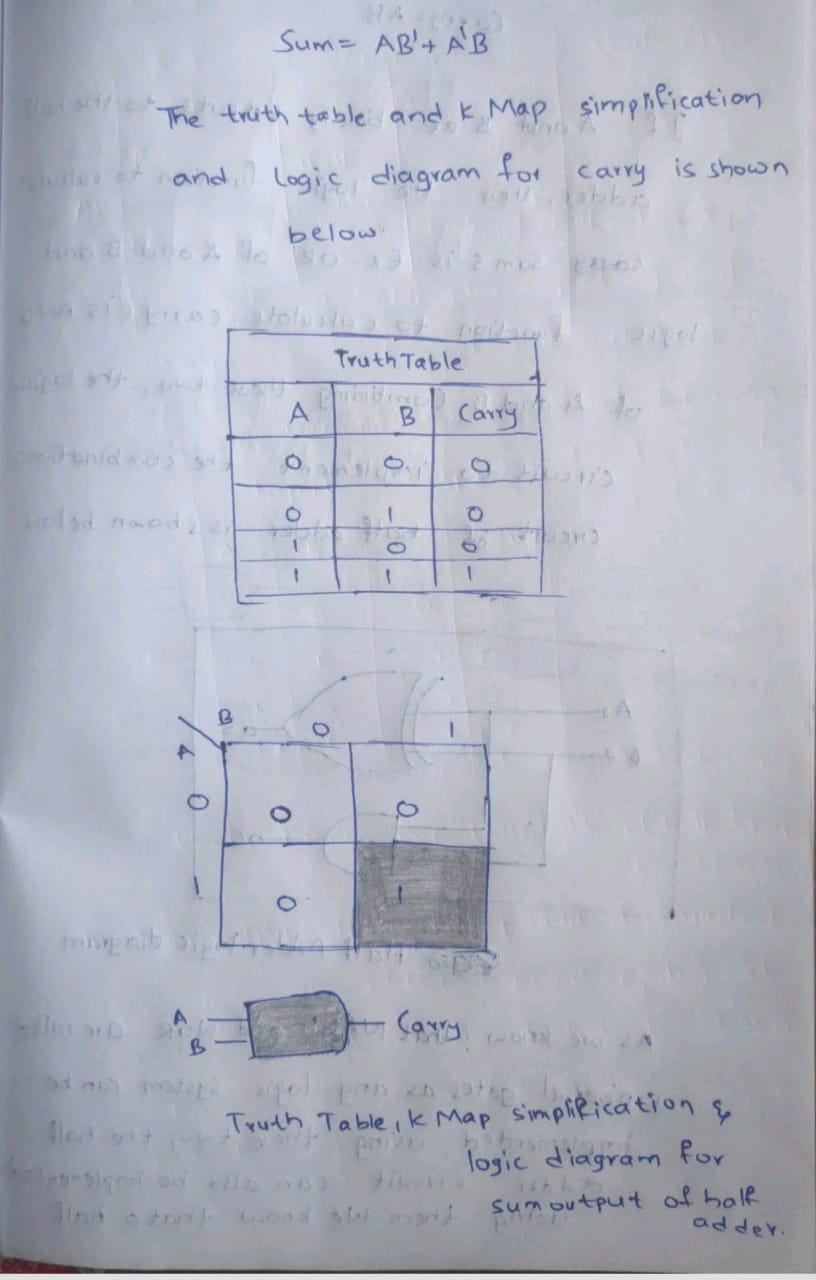 Sum = AB' + A'B
The truth table and k Map simplification
and logic diagram for carry is shown
below.
Truth Table
A B Carry
0 0 0
0 1 0
1 0 0
1 1 1
B 0 1
A
0 0 0
1 0 1
A
B
Carry
Truth Table, k Map simplification &
logic diagram for
sum output of half
adder.